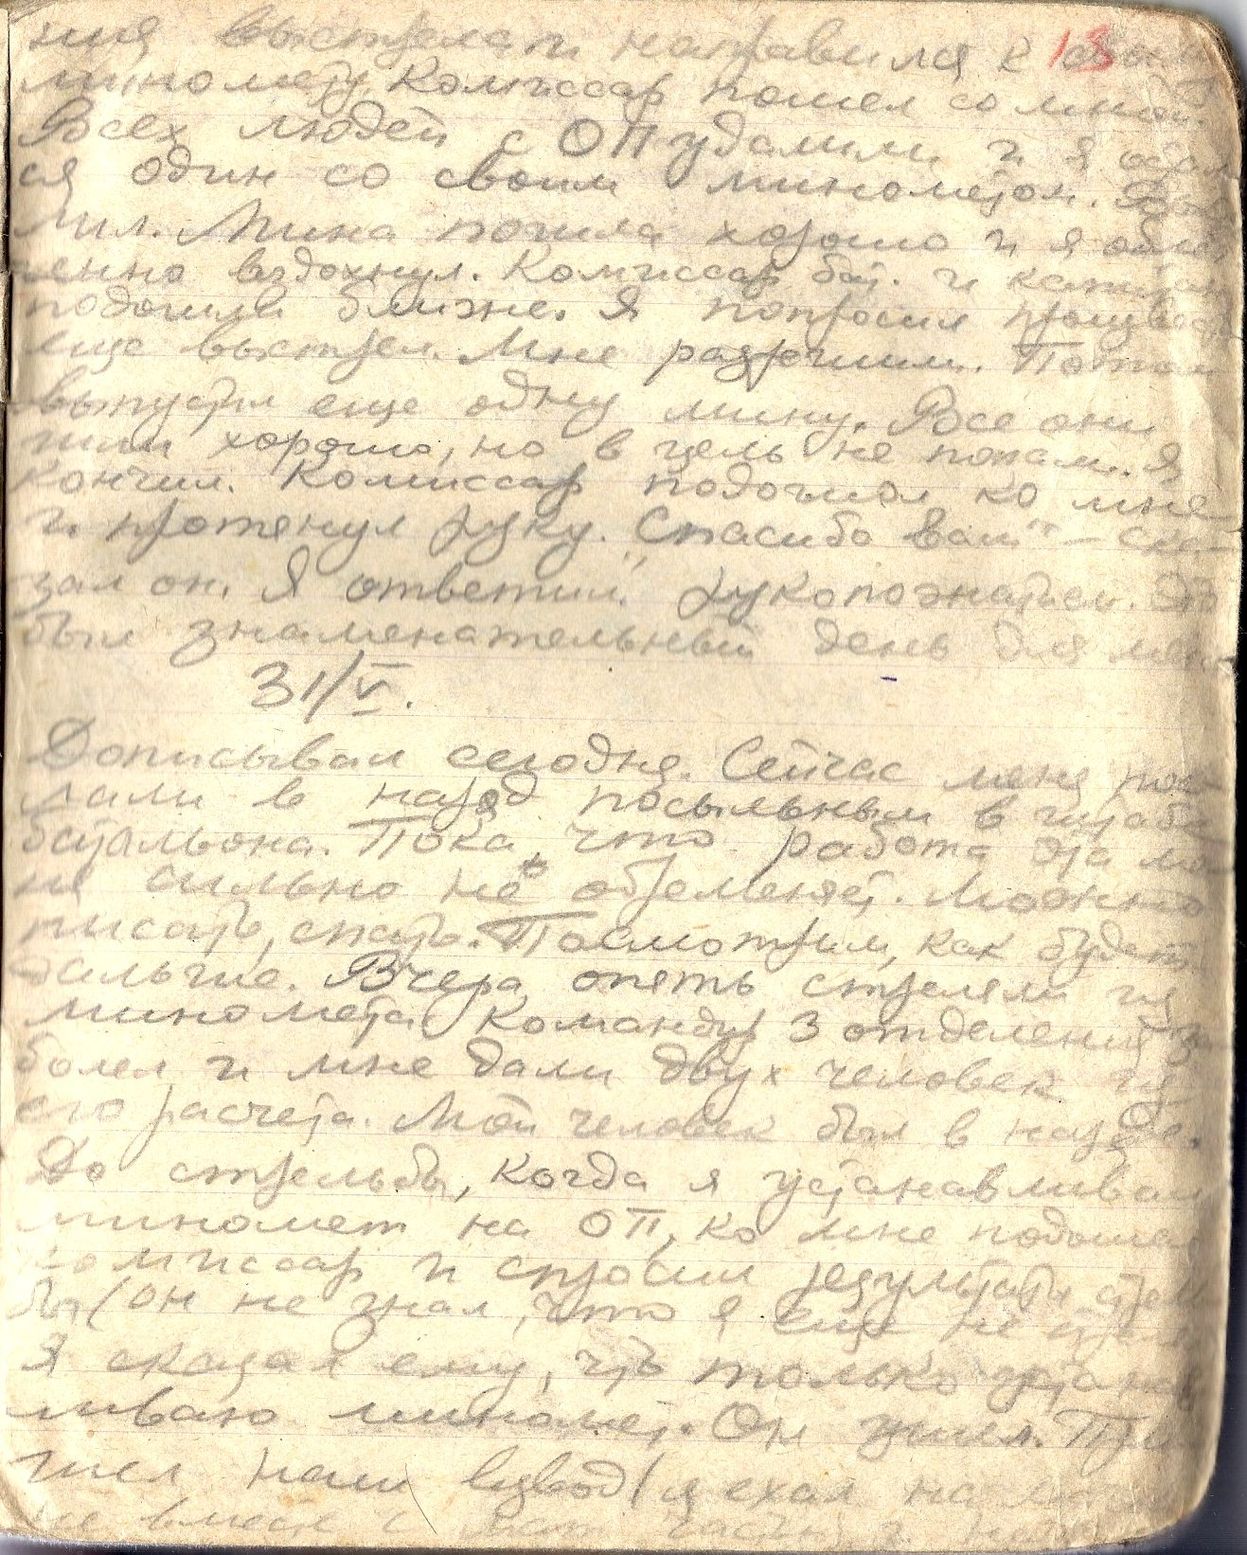 ния выстрела и направился к 18
миномету. Комиссар пошел со мной.
Всех людей с ОП удалили и я остал
ся один со своим минометом.
Мина пошла хорошо и я облег
ченно вздохнул. Комиссар бат. и капитан
подошли ближе. Я попросил произвести
еще выстрел. Мне разрешили. Потом
выпустил еще одну мину. Все они
шли хорошо, но в цель не попали. Я
кончил. Комиссар подошел ко мне
и протянул руку. „Спасибо вам" – ска-
зал он. Я ответил рукопожатием. Это
был знаменательный день для меня
31/V.
Дописывал сегодня. Сейчас меня пос-
лали в наряд посыльным в штабе
батальона. Пока, что работа эта ме
ня сильно не обременяет. Можно
писать, спать. Посмотрим, как будет
дальше. Вчера опять стреляли из
миномета. Командир 3 отделения за
болел и мне дали двух человек из
его расчета. Мой человек был в наряде.
До стрельбы, когда я устанавливал
миномет на ОП, ко мне подошел
комиссар и спросил результаты стрель
бы (он не знал, что я еще не стрелял
Я сказал ему, что только устанав
ливаю миномет. Он ушел. При
шел наш взвод (я ехал на
вместе с